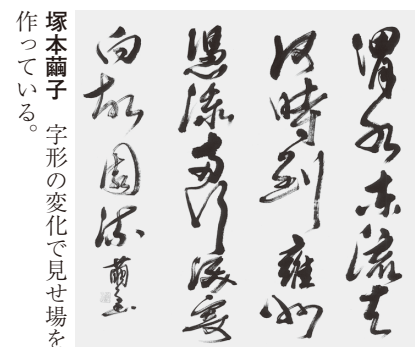 渭水東流去
何時到雍州
憑添兩行淚寄
向故園流 繭子
塚本繭子 字形の変化で見せ場を
作っている。